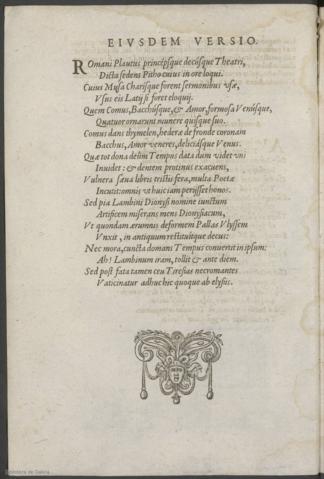 EIVSDEM VERSIO.
ROmani Plautus princépsque decúsque Theatri,
Dicta sedens Pitho cuius in ore loqui.
Cuius Musa Charisque forent sermonibus vsæ,
Vsus eis Latij si foret eloquij.
Quem Comus, Bacchúsque, & Amor, formosa Venúsque,
Quatuor ornarunt munere quisque suo.
Comus dans thymelen, hederæ de fronde coronam
Bacchus, Amor veneres, deliciásque Venus.
Quæ tot dona delim Tempus data dum videt vni
Inuidet: & dentem protinus exacuens,
Vulnera sæua libris tristis fera, multa Poetæ
Incutit: omnis vt huic iam periisset honos.
Sed pia Lambini Dionysi nomine iunctum
Artificem miserans mens Dionysiacum,
Vt quondam ærumnis deformem Pallas Vlyssem
Vnxit, in antiquum restituitque decus:
Nec mora, cuncta domans Tempus conuertit in ipsum:
Ah! Lambinum iram, tollit & ante diem.
Sed post fata tamen ceu Tiresias necromantes
Vaticinatur adhuc hic quoque ab elysiis.
Biblioteca de Galicia